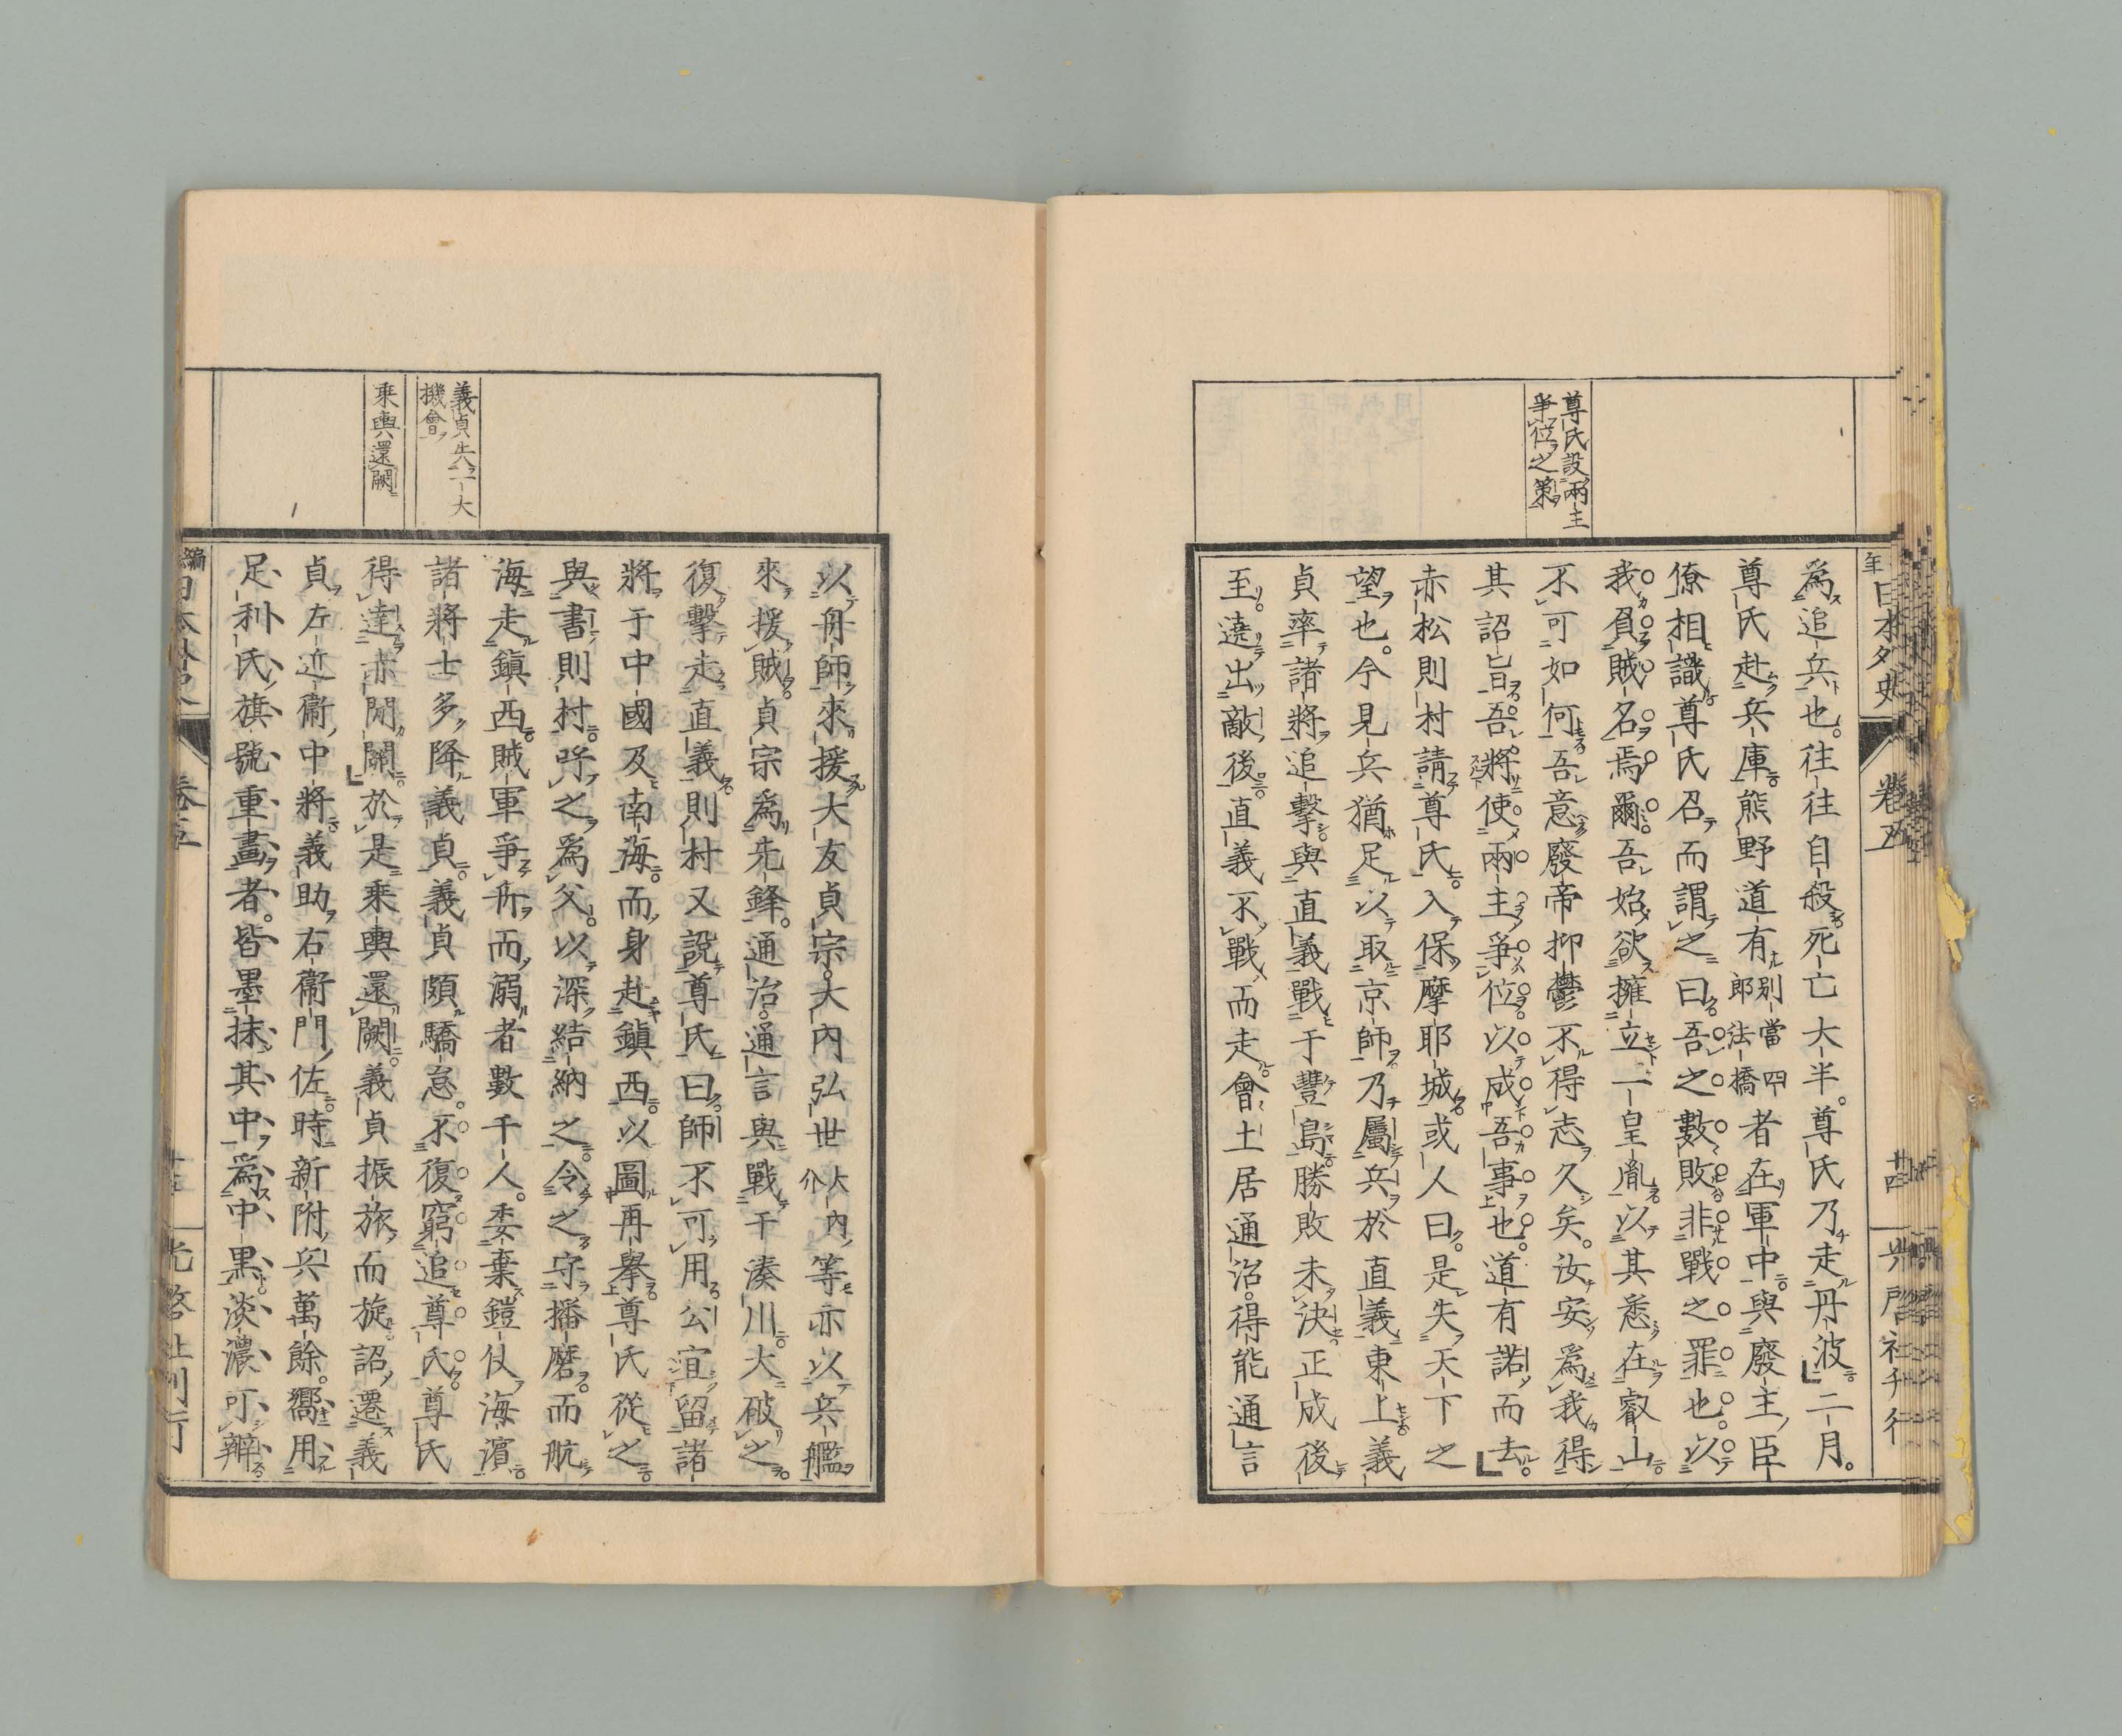 尊氏設兩主
爭位之策
爲追兵也。往往自殺死亡大半。尊氏乃走丹波二月。
尊氏赴兵庫。熊野道有別當四郎法橋者在軍中。與廢主臣
僚相識。尊氏召而謂之曰。吾之數敗非戰之罪也。以
我負賊名焉爾。吾始欲擁立一皇胤。以其悉在叡山
不可如何。吾意廢帝抑鬱不得志久矣。汝安爲我得
其詔旨。吾將使兩主爭位以成吾事也。道有諾而去。
赤松則村請尊氏。入保摩耶城。或人曰。是失天下之
望也。今見兵猶足以取京師。乃屬兵於直義東上。義
貞率諸將追擊。與直義戰于豐島。勝敗未決。正成後
至。遶出敵後。直義不戰而走。會土居通治。得能通言
卷五
廿四
義貞失一大
機會
乘輿還闕
以舟師來援。大友貞宗。大內弘世大內介等亦以兵艦
來援賊。貞宗爲先鋒。通治。通言與戰于湊川。大破之。
復擊走直義。則村又說尊氏曰。師不可用。公宜留諸
將于中國及南海。而身赴鎮西。以圖再擧。尊氏從之。
與書則村。呼之爲父。以深結納之。令之守播磨。而航
海走鎮西。賊軍爭舟而溺者數千人。委棄鎧仗海濱。
諸將士多降義貞。義貞頗驕怠。不復窮追尊氏。尊氏
得達赤間關。於是乘輿還闕。義貞振旅而旋。詔遷義
貞左近衞中將。義助右衞門佐。時新附兵萬餘。嚮用
足利氏旗號重畫者。皆墨抹其中。爲中黑。淡濃可辨。
卷五